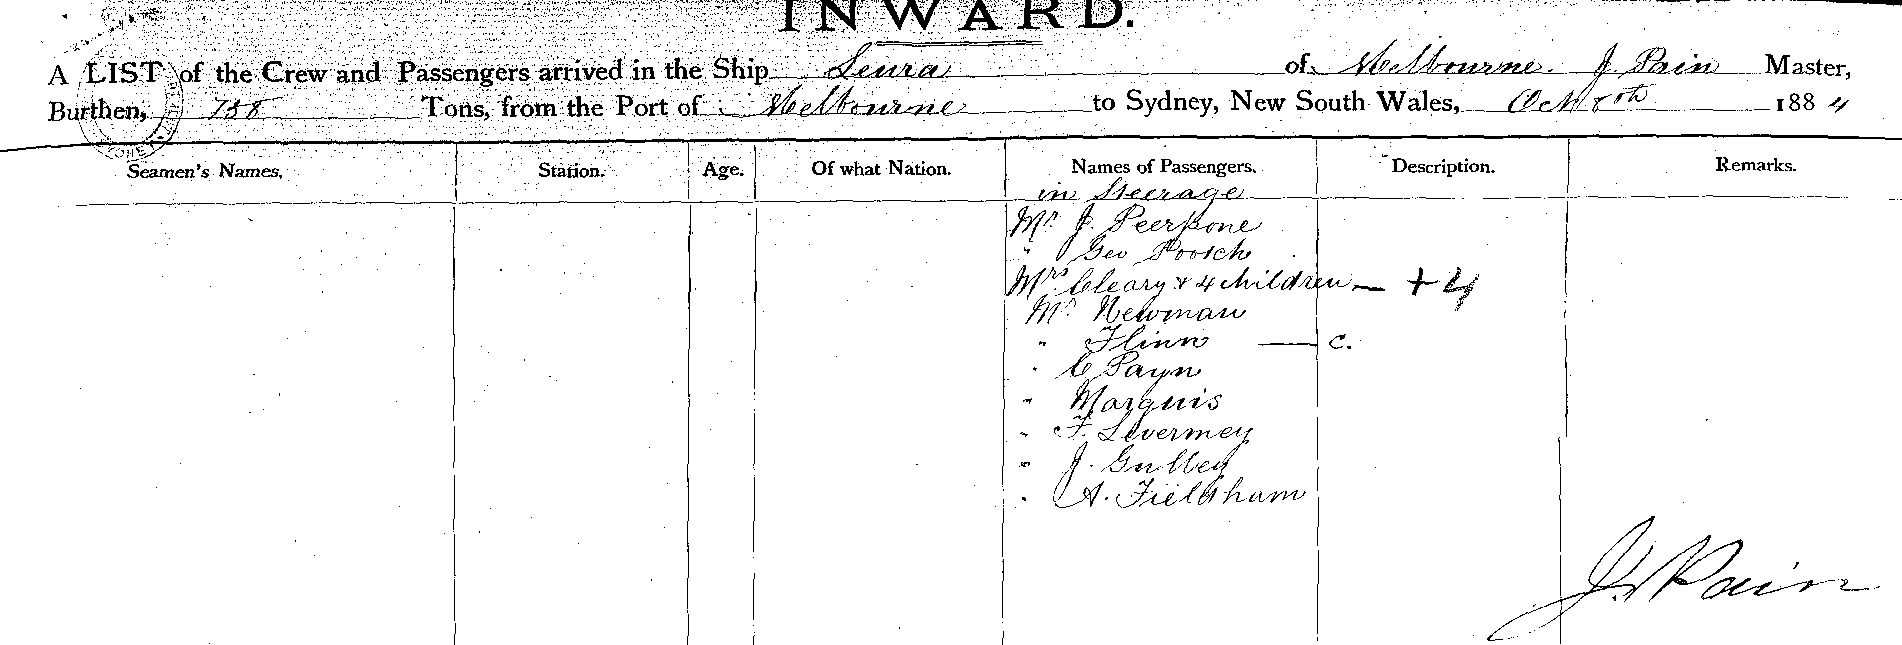 INWARD.
A LIST of the Crew and Passengers arrived in the Ship Leura of Melbourne. J. Pain Master,
Burthen, Tons, from the Port of Melbourne to Sydney, New South Wales, Oct 1884
Seamen's Names. Station. Age. Of what Nation. Names of Passengers. Description. Remarks.
in Steerage
Mr J. Peerpone
" Geo Poosch
Mrs Cleary & 4 children — +4
Mr Newman
" Flinn — c.
" C Payn
" Marquis
" F. Livermey
" J. Gulley
" A. Fieldsham
J. Pain